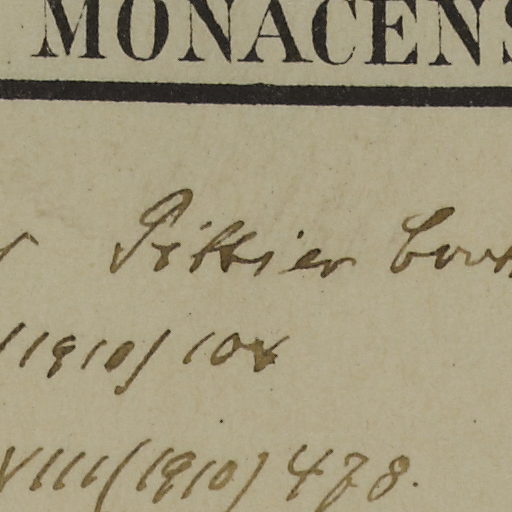 MONACENS
r Pittier Cont
(1910) 104
VIII (1910) 478.